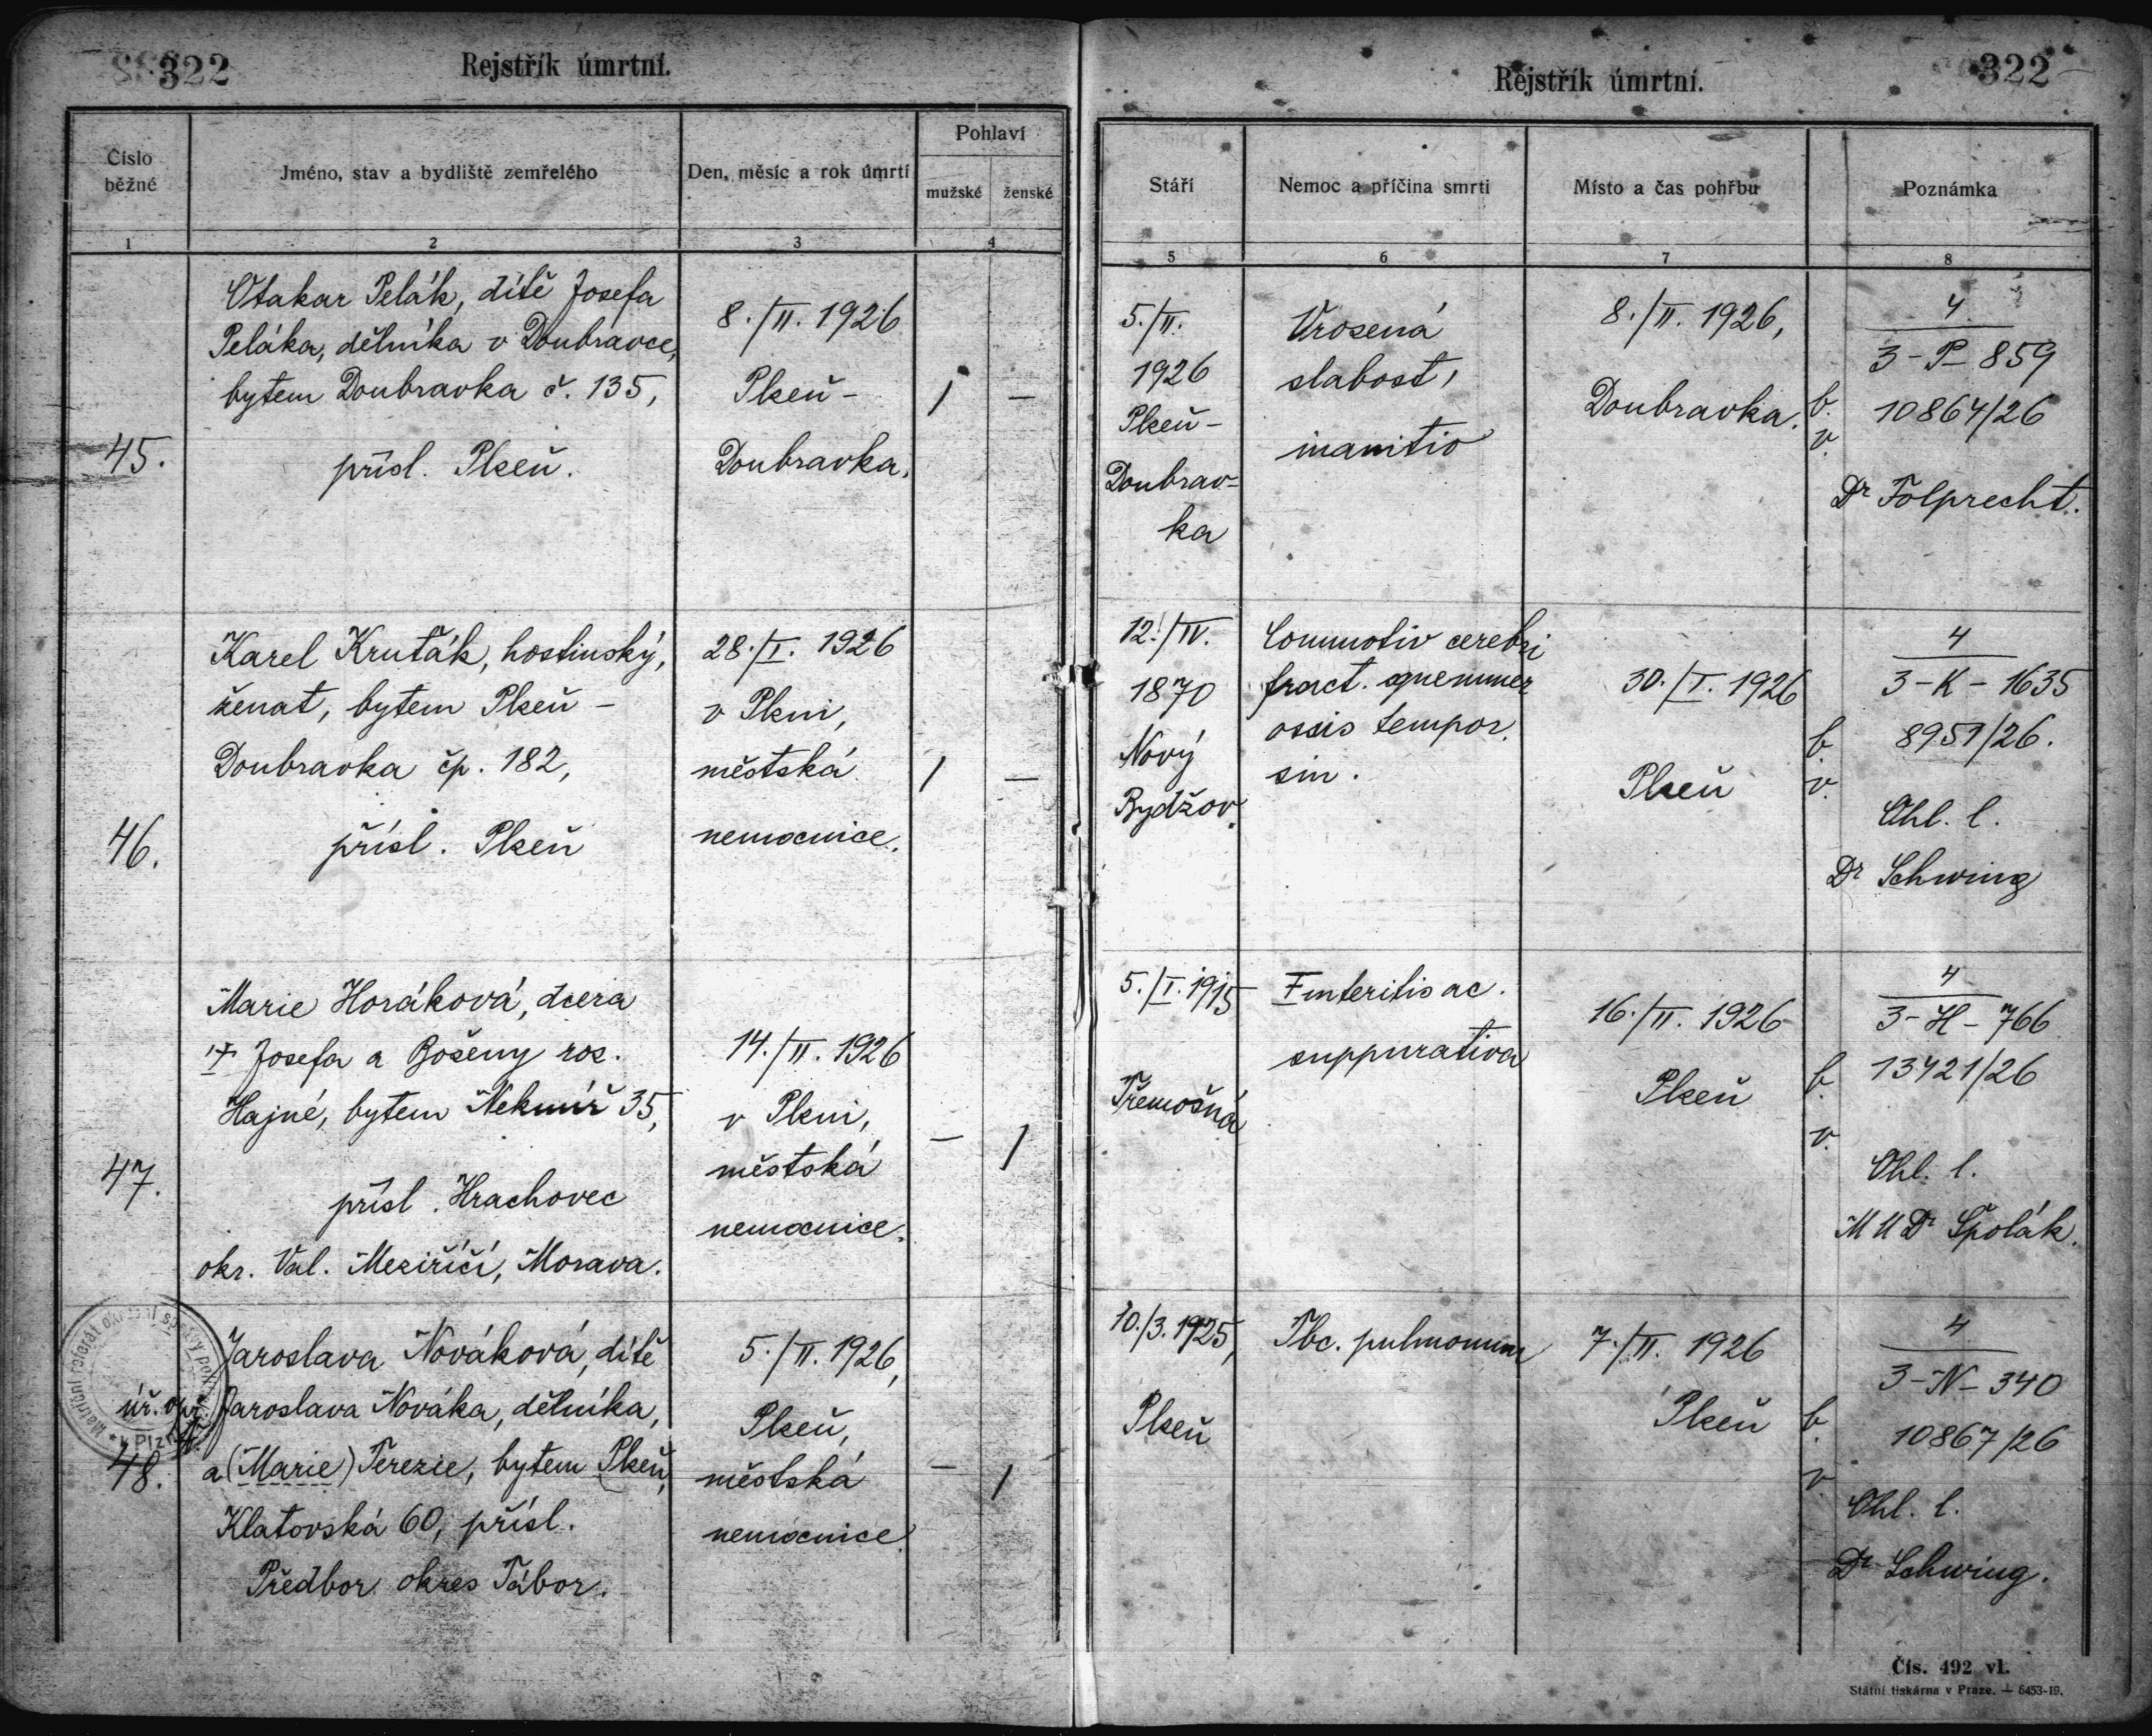 322
Rejstřík úmrtní.
Číslo běžné
Jméno, stav a bydliště zemřelého
Den, měsíc a rok úmrtí
Pohlaví
mužské
ženské
1
2
3
4
Otakar Pelák, dítě Josefa
Peláka, dělníka v Doubravce,
bytem Doubravka č. 135,
45.
přísl. Plzeň.
8./II. 1926
Plzeň-
Doubravka.
/
—
Karel Kruťák, hostinský,
ženat, bytem Plzeň -
Doubravka čp. 182,
46.
přísl. Plzeň
28./I. 1926
v Plzni,
městská
nemocnice.
/
—
Marie Horáková, dcera
Josefa a Boženy roz.
Hajné, bytem Nekmíř 35,
47.
přísl. Hrachovec
okr. Val. Meziříčí, Morava.
14./II. 1926
v Plzni,
městská
nemocnice.
—
/
Jaroslava Nováková, dítě
úř. opr.
Jaroslava Nováka, dělníka,
48.
a (Marie) Terezie, bytem Plzeň,
Klatovská 60, přísl.
Předbor okres Tábor.
5./II. 1926,
Plzeň,
městská
nemocnice.
—
/
322
Rejstřík úmrtní.
Stáří
Nemoc a příčina smrti
Místo a čas pohřbu
Poznámka
5
6
7
8
5./II.
1926
Plzeň-
Doubrav=
ka
Vrozená
slabost,
inanitio
8./II. 1926,
Doubravka.
b.
v.
4
3-P-859
10864/26
Dr Folprecht.
12./IV.
1870
Nový
Bydžov.
Commotio cerebri
fract. squammae
ossis tempor.
sin.
30./I. 1926
Plzeň
b.
v.
4
3-K-1635
8951/26.
Ohl. l.
Dr Schwing
5./I. 1915
Třemošná
Enteritis ac.
suppurativa
16./II. 1926
Plzeň
b.
v.
4
3-H-766
13421/26
Ohl. l.
MUDr Špolák.
10./3. 1925,
Plzeň
Tbc. pulmonum
7./II. 1926
Plzeň
b.
v.
4
3-N-340
10867/26
Ohl. l.
Dr Schwing.
Čís. 492 vl.
Státní tiskárna v Praze. — 6453-19.